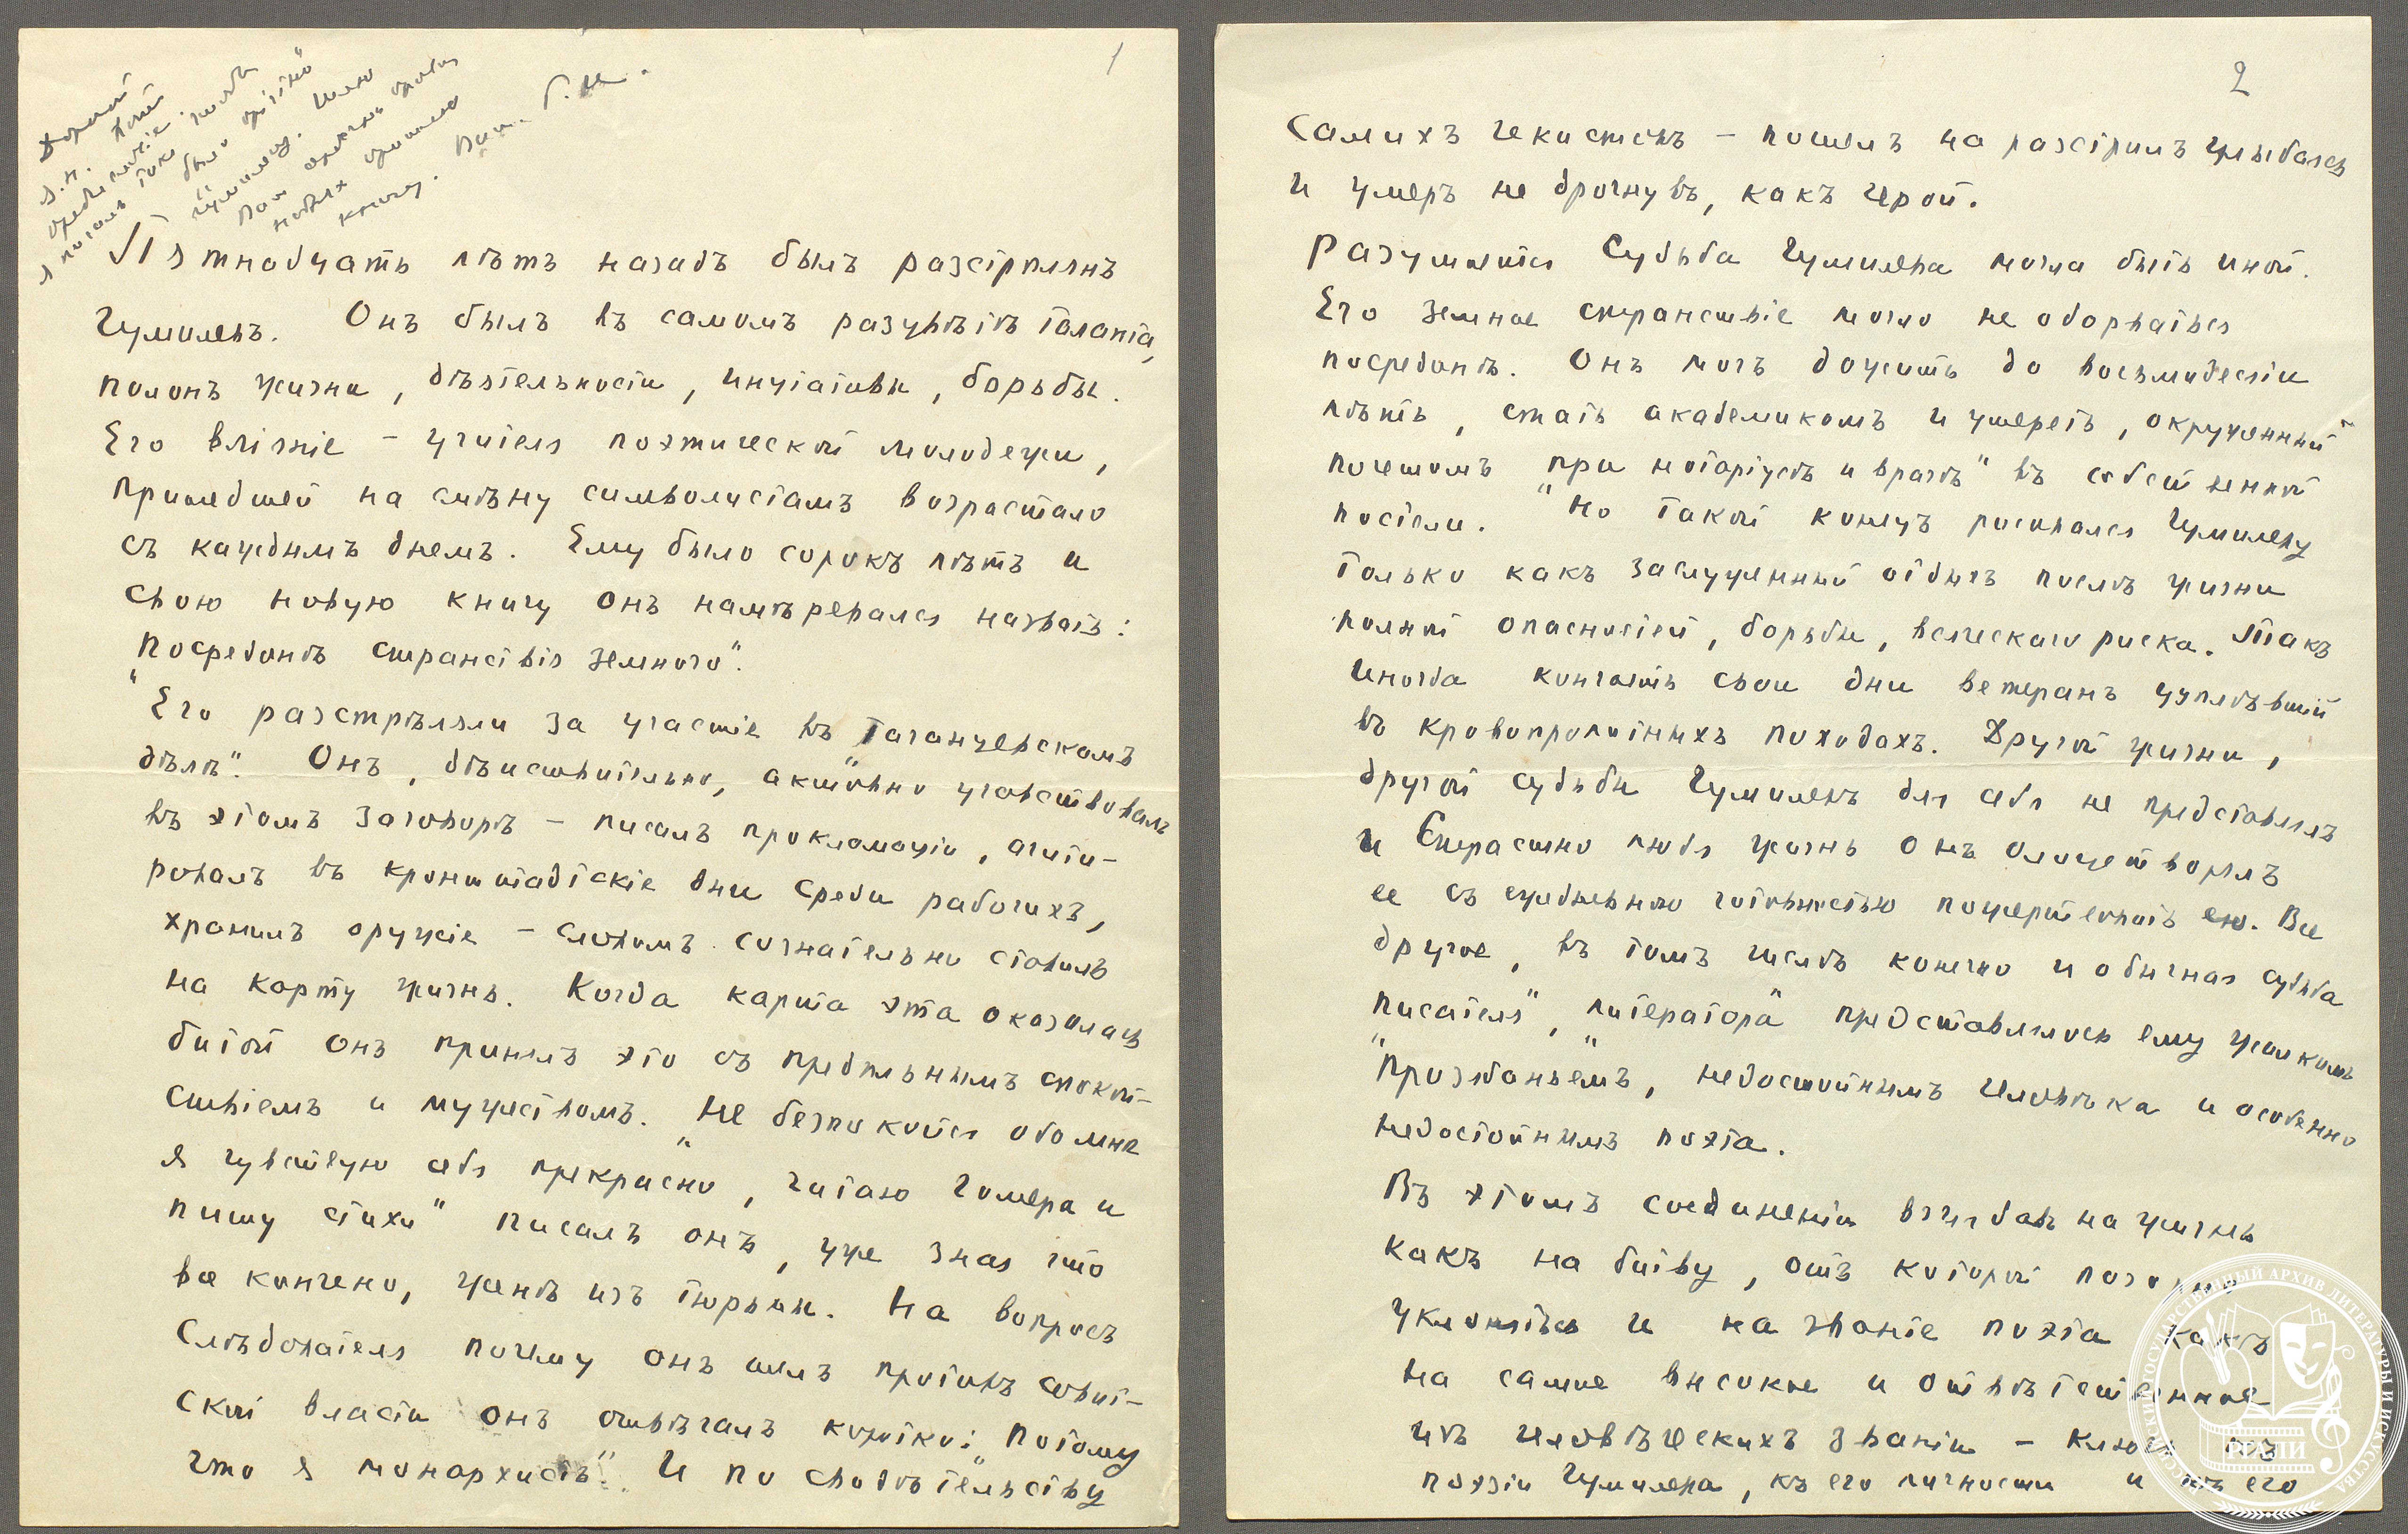 1
Пятнадцать лѣтъ назадъ былъ разстрѣлянъ
Гумилевъ. Онъ былъ въ самомъ разцвѣтѣ таланта,
полонъ жизни, дѣятельности, инцiативы, борьбы.
Его влiянiе – учителя поэтической молодежи,
пришедшей на смѣну символистамъ возрастало
съ каждымъ днемъ. Ему было сорокъ лѣтъ и
свою новую книгу онъ намѣревался назвать:
„Посрединѣ странствiя земного".
Его разстрѣляли за участiе въ „Таганцевскомъ
дѣлѣ". Онъ, дѣйствительно, активно участвовалъ
въ этомъ заговорѣ – писалъ прокламацiи, агити-
ровалъ въ кронштадтскiе дни среди рабочихъ,
хранилъ оружiе – словомъ сознательно ставилъ
на карту жизнь. Когда карта эта оказалась
битой онъ принялъ это съ предѣльнымъ спокой-
ствiемъ и мужествомъ. „Не безпокойся обо мнѣ
я чувствую себя прекрасно, читаю Гомера и
пишу стихи" писалъ онъ, уже зная что
все кончено, женѣ изъ тюрьмы. На вопросъ
слѣдователя почему онъ шелъ противъ совѣт-
ской власти онъ отвѣчалъ коротко: „Потому
что я монархистъ". И по свидѣтельству
2
самихъ чекистовъ – пошелъ на разстрѣлъ улыбаясь
и умеръ не дрогнувъ, какъ герой.
Разумѣется судьба Гумилева могла быть иной.
Его земное странствiе могло не оборваться
посрединѣ. Онъ могъ дожить до восьмидесяти
лѣтъ, стать академикомъ и умереть, окруженный
почетомъ „при нотарiусѣ и врачѣ" въ собственной
постели. Но такой конецъ рисовался Гумилеву
только какъ заслуженный отдыхъ послѣ жизни
полной опасностей, борьбы, всяческаго риска. Такъ
иногда кончаетъ свои дни ветеранъ уцѣлѣвшiй
въ кровопролитныхъ походахъ. Другой жизни,
другой судьбы Гумилевъ для себя не представлялъ
и страстно любя жизнь онъ олицетворялъ
ее съ ежедневною готовностью пожертвовать ею. Все
другое, въ томъ числѣ конечно и обычная судьба
„писателя", „литератора" представлялось ему жалкимъ
„прозябаньемъ", недостойнымъ человѣка и особенно
недостойнымъ поэта.
Въ этомъ соединенiи взглядовъ на жизнь
какъ на битву, отъ которой позорно
уклоняться и на званiе поэта какъ
на самое высокое и отвѣтственное
изъ человѣческихъ званiй – ключъ къ
поэзiи Гумилева, къ его личности и къ его
РОССИЙСКИЙ ГОСУДАРСТВЕННЫЙ АРХИВ ЛИТЕРАТУРЫ И ИСКУССТВА
РГАЛИ